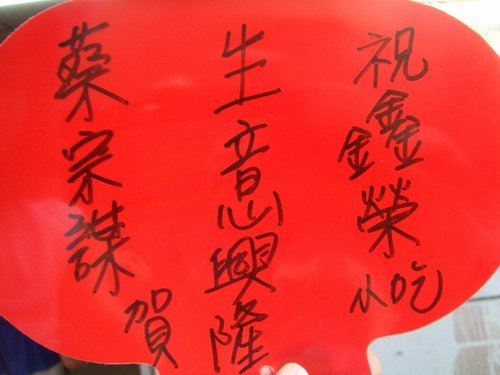 祝鑫榮小吃
生意興隆
蔡宗謀
賀